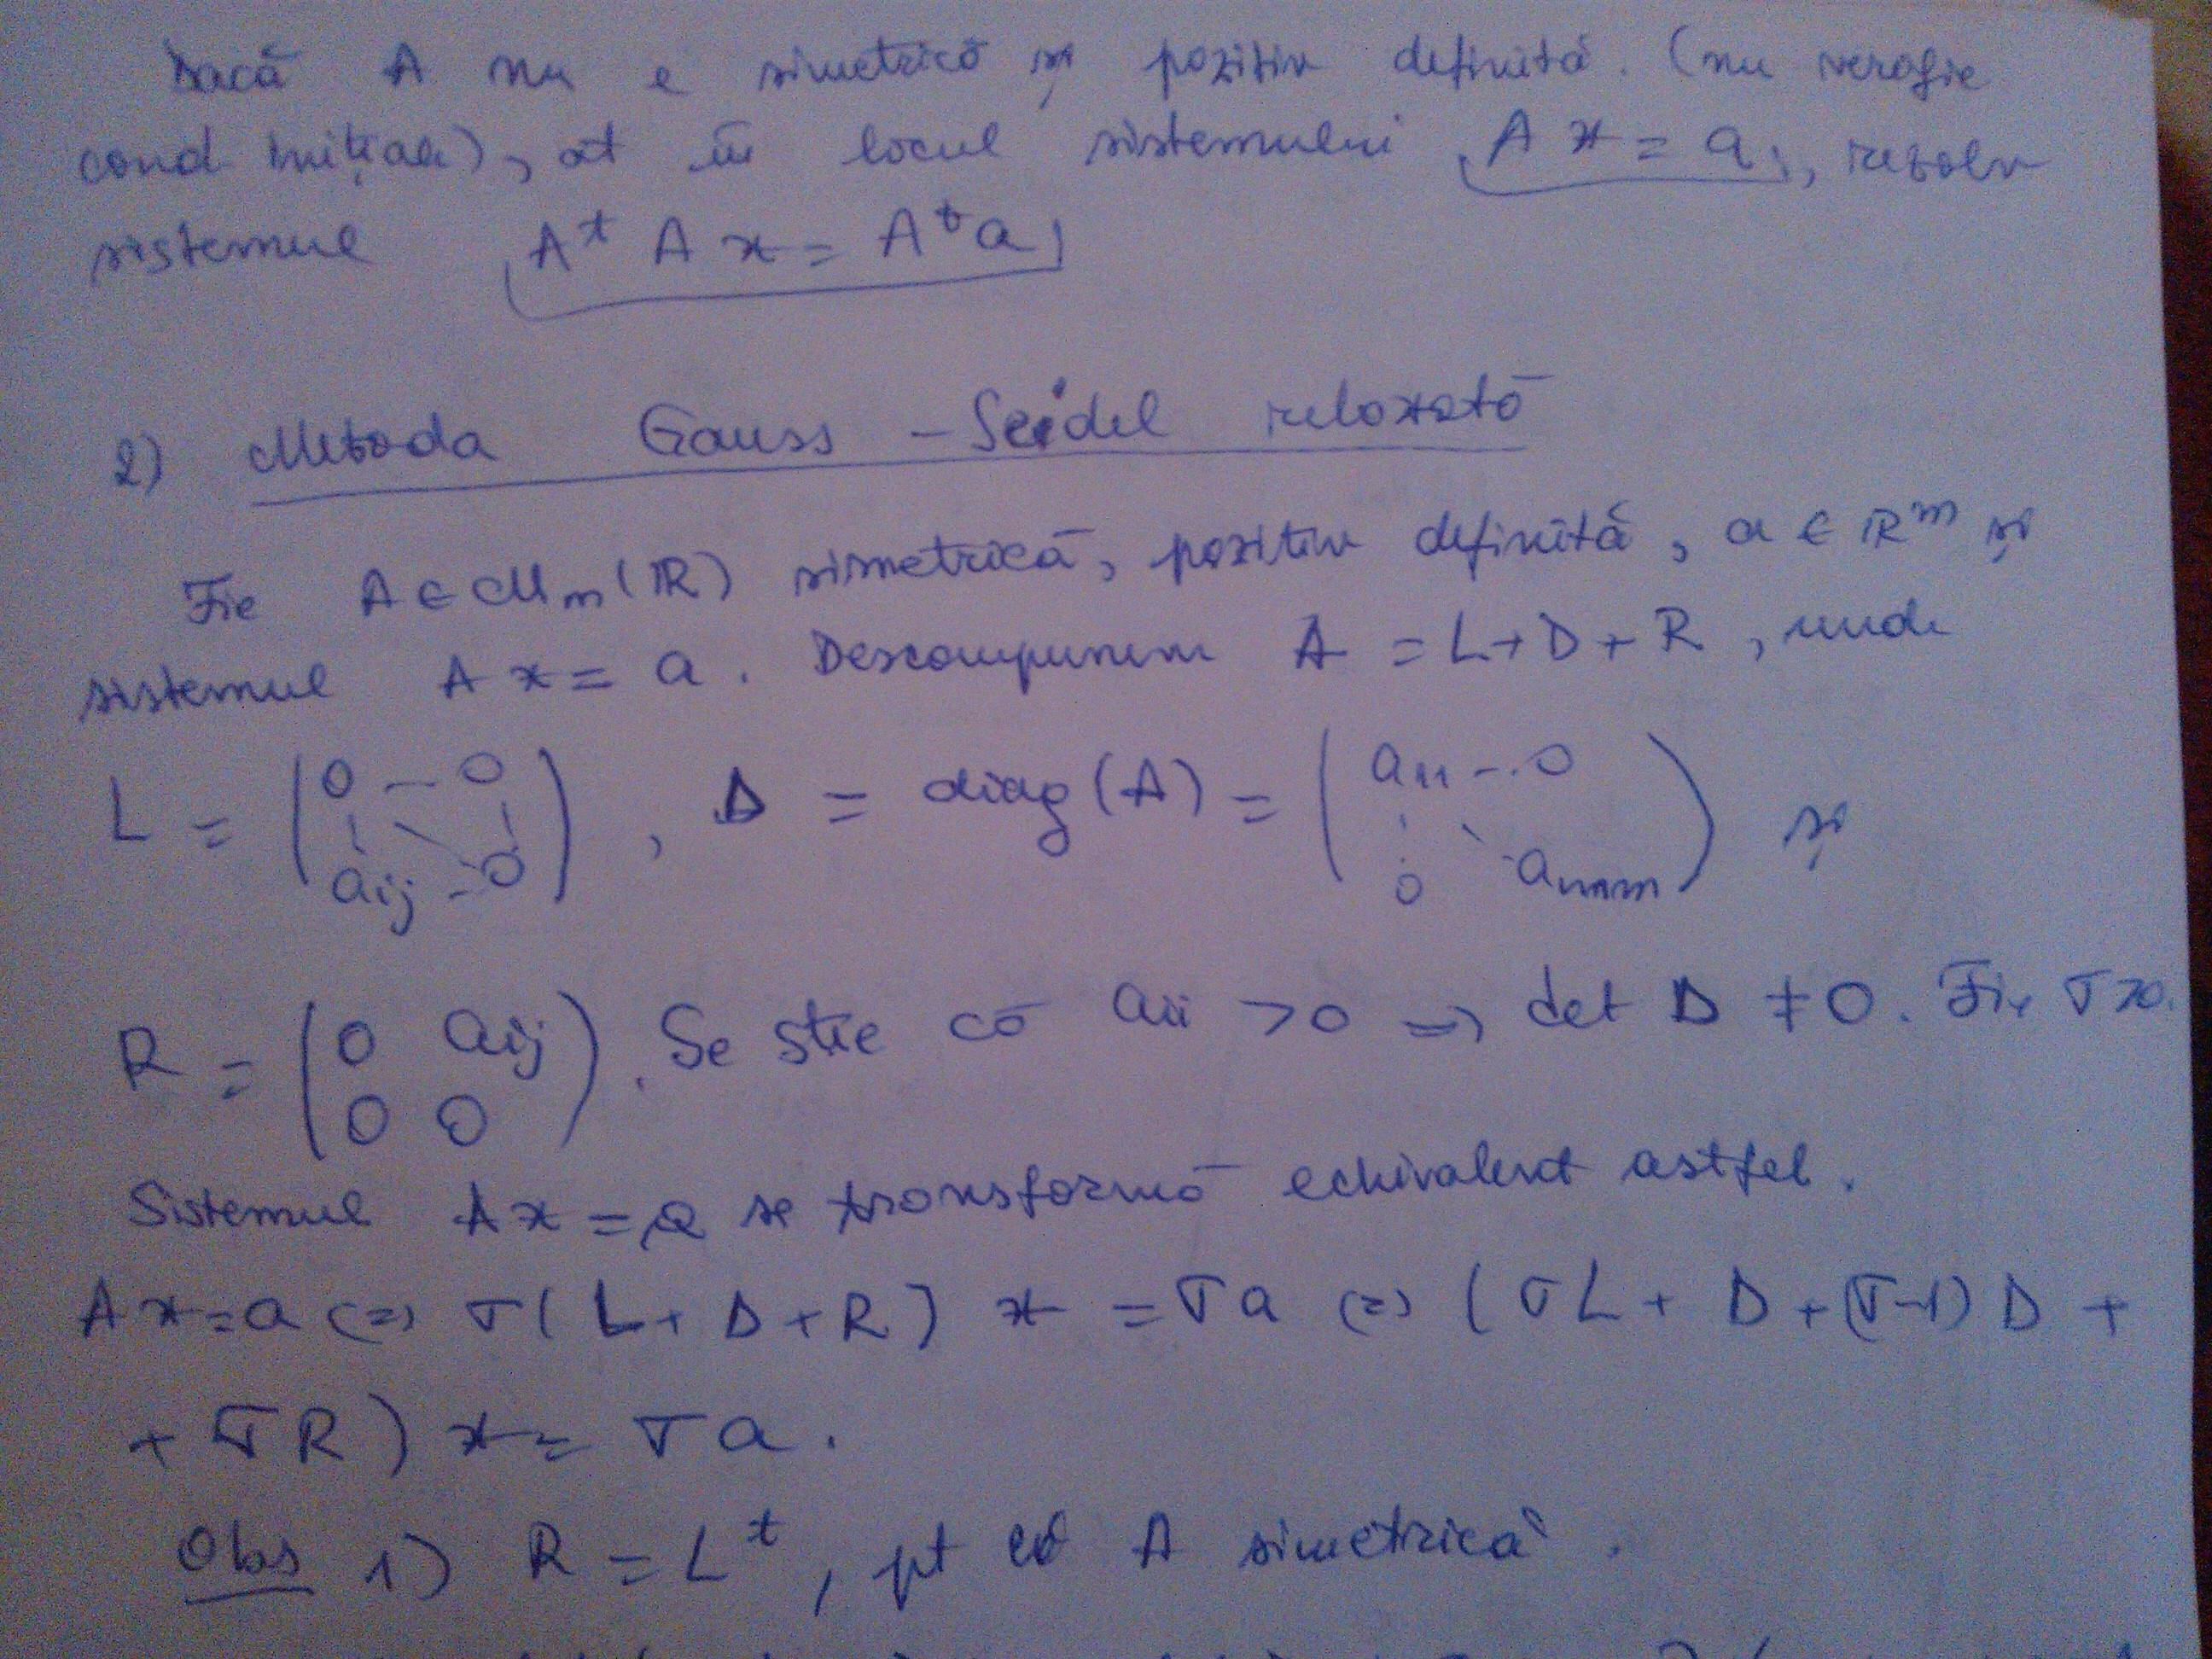 Dacă A nu e simetrică și pozitiv definită. (nu verifică
cond inițiale), at în locul sistemului A x = a, rezolv
sistemul A^t A x = A^t a
2) Metoda Gauss - Seidel relaxată
Fie A ∈ M_m(ℝ) simetrică, pozitiv definită, a ∈ ℝ^m și
sistemul A x = a. Descompunem A = L + D + R, unde
L = (0 - 0 / a_ij - 0), D = diag(A) = (a_11 -.. 0 / 0 a_mm) și
R = (0 a_ij / 0 0). Se știe că a_ii > 0 => det D ≠ 0. Fie σ > 0.
Sistemul A x = a se transformă echivalent astfel.
A x = a (=) σ(L + D + R) x = σ a (=) (σL + D + (σ-1) D +
+ σR) x = σ a.
Obs 1) R = L^t, pt că A simetrică.